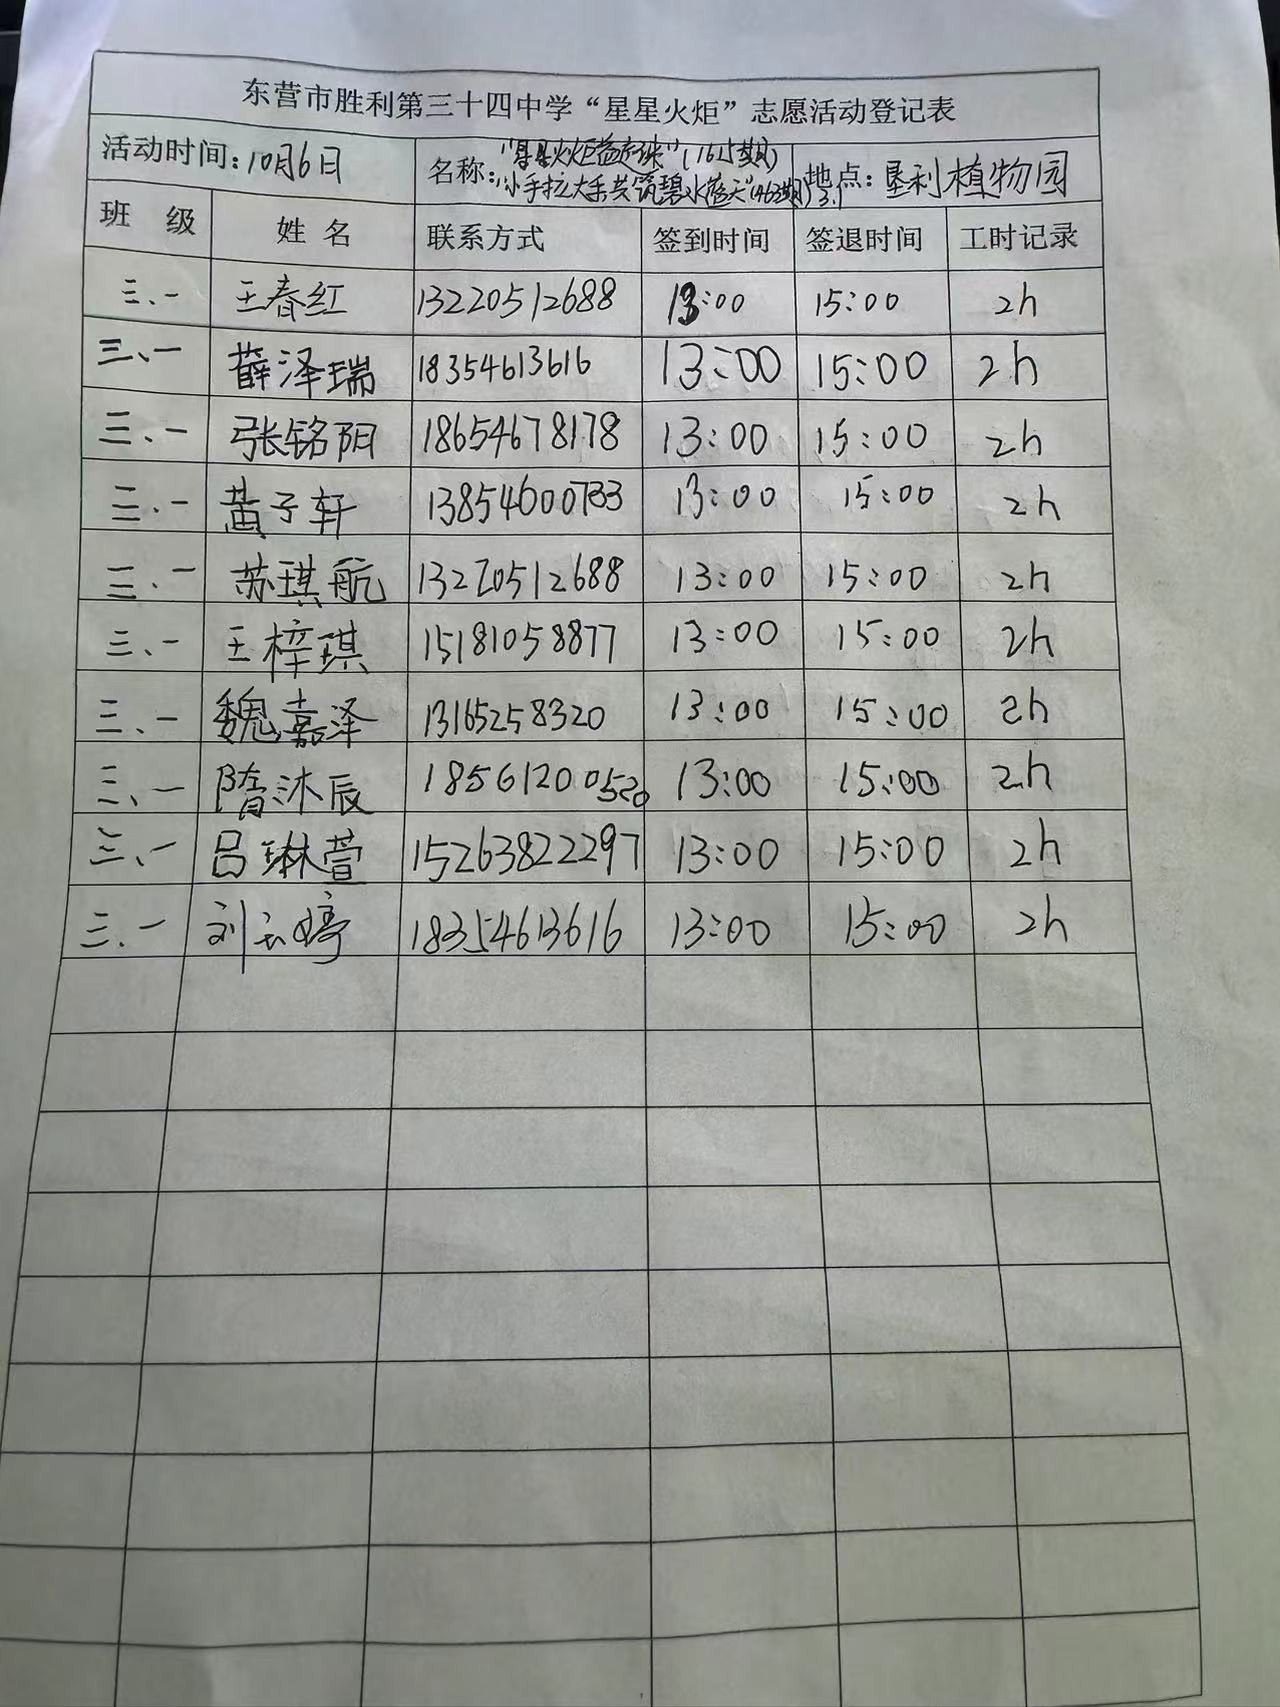 东营市胜利第三十四中学“星星火炬”志愿活动登记表
活动时间:10月6日 名称:“星星火炬益起来”(1615期) 地点:垦利植物园
“小手拉大手共筑碧水蓝天”(463期)
班 级 姓 名 联系方式 签到时间 签退时间 工时记录
三.一 王春红 13220512688 13:00 15:00 2h
三、一 薛泽瑞 18354613616 13:00 15:00 2h
三、一 张铭阳 18654678178 13:00 15:00 2h
三.一 黄子轩 13854600733 13:00 15:00 2h
三.一 苏琪航 13220512688 13:00 15:00 2h
三、一 王梓琪 15181058877 13:00 15:00 2h
三.一 魏嘉泽 13165258320 13:00 15:00 2h
三、一 隋沐辰 18561200520 13:00 15:00 2h
三、一 吕琳萱 15263822297 13:00 15:00 2h
三.一 刘云婷 18354613616 13:00 15:00 2h